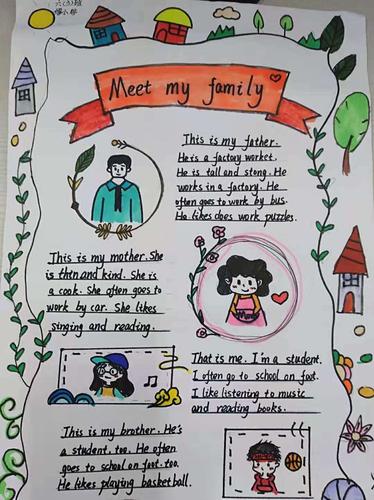 六(5)班
Meet my family
This is my father.
He is a factory worket.
He is tall and stong. He
works in a factory. He
often goes to work by bus.
He likes does work puzzles.
This is my mother. She
is thtn and kind. She is
a cook. She often goes to
work by car. She likes
singing and reading.
That is me. I'm a student.
I often go to school on foot.
I like listening to music
and reading books.
This is my brother. He's
a student, too. He often
goes to school on foot. too.
He likes playing basketball.